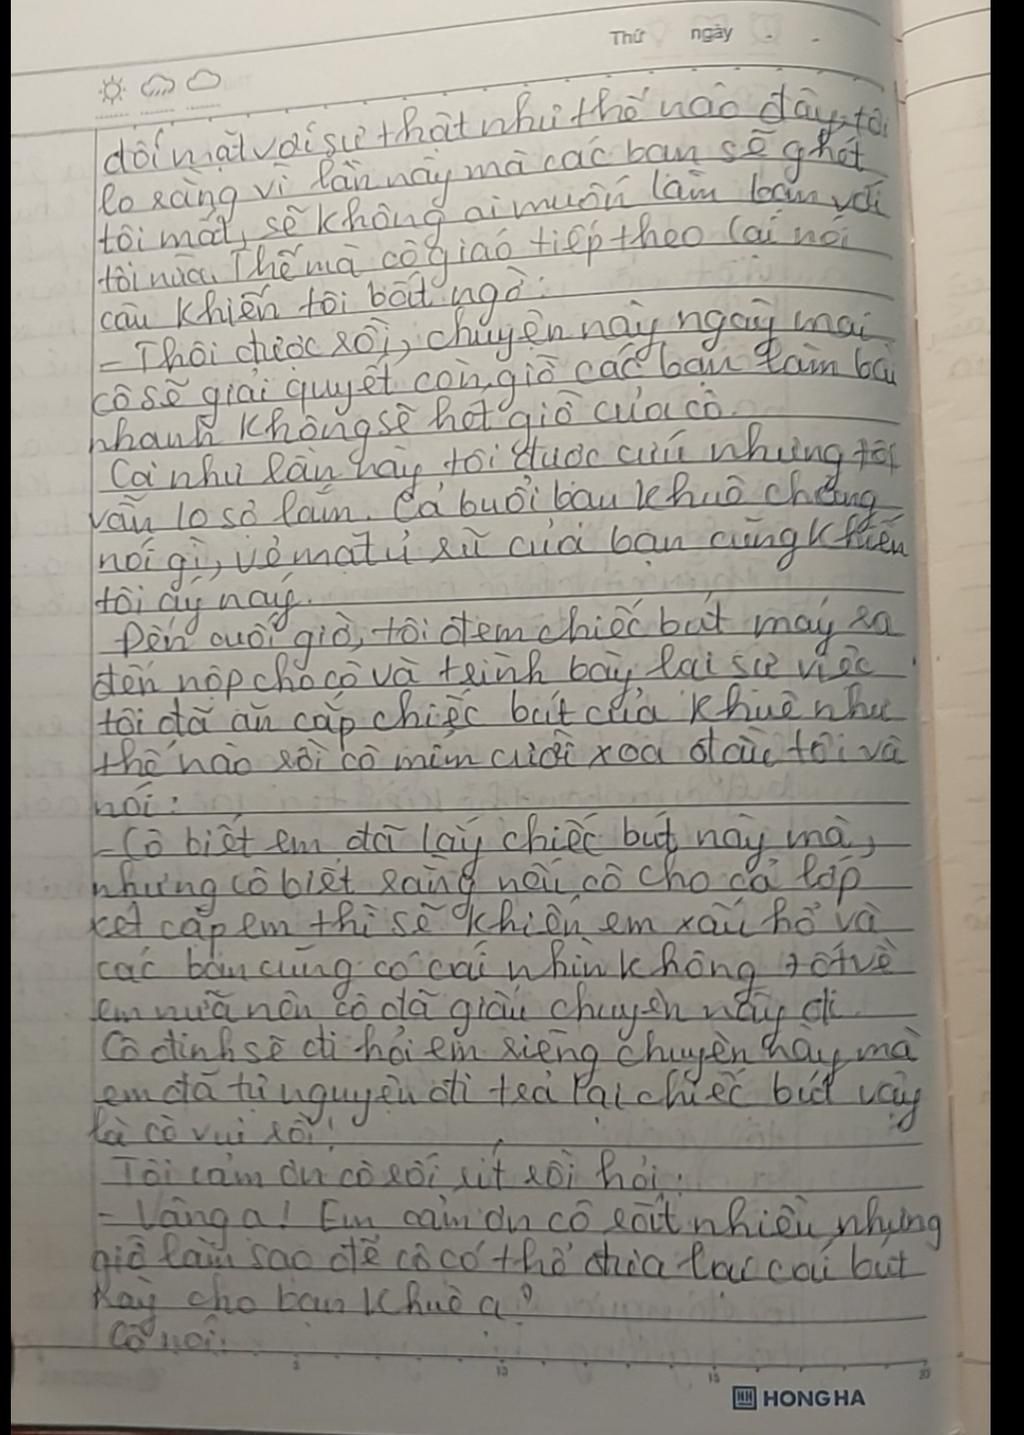 Thứ ngày
đối mặt với sự thật như thế nào đây, tôi
lo rằng vì lần này mà các bạn sẽ ghét
tôi mất, sẽ không ai muốn làm bạn với
tôi nữa. Thế mà cô giáo tiếp theo lại nói
câu khiến tôi bất ngờ:
- Thôi được rồi, chuyện này ngày mai
cô sẽ giải quyết còn giờ các bạn làm bài
nhanh không sẽ hết giờ của cô.
Coi như lần này tôi được cứu nhưng tôi
vẫn lo sợ lắm. Cả buổi bạn Khuê chẳng
nói gì, vẻ mặt ủ rũ của bạn cũng khiến
tôi áy náy.
Đến cuối giờ, tôi đem chiếc bút máy ra
đến nộp cho cô và trình bày lại sự việc
tôi đã ăn cắp chiếc bút của Khuê như
thế nào rồi cô mỉm cười xoa đầu tôi và
nói:
- Cô biết em đã lấy chiếc bút này mà,
nhưng cô biết rằng nếu cô cho cả lớp
xét cặp em thì sẽ khiến em xấu hổ và
các bạn cũng có cái nhìn không tốt về
em nữa nên cô đã giấu chuyện này đi.
Cô định sẽ đi hỏi em riêng chuyện này mà
em đã tự nguyện đi trả lại chiếc bút vậy
là cô vui rồi!
Tôi cảm ơn cô rối rít rồi hỏi:
- Vâng ạ! Em cảm ơn cô rất nhiều nhưng
giờ làm sao để cô có thể đưa lại cái bút
này cho bạn Khuê ạ?
Cô nói:
5 10 15 20
HH HONG HA